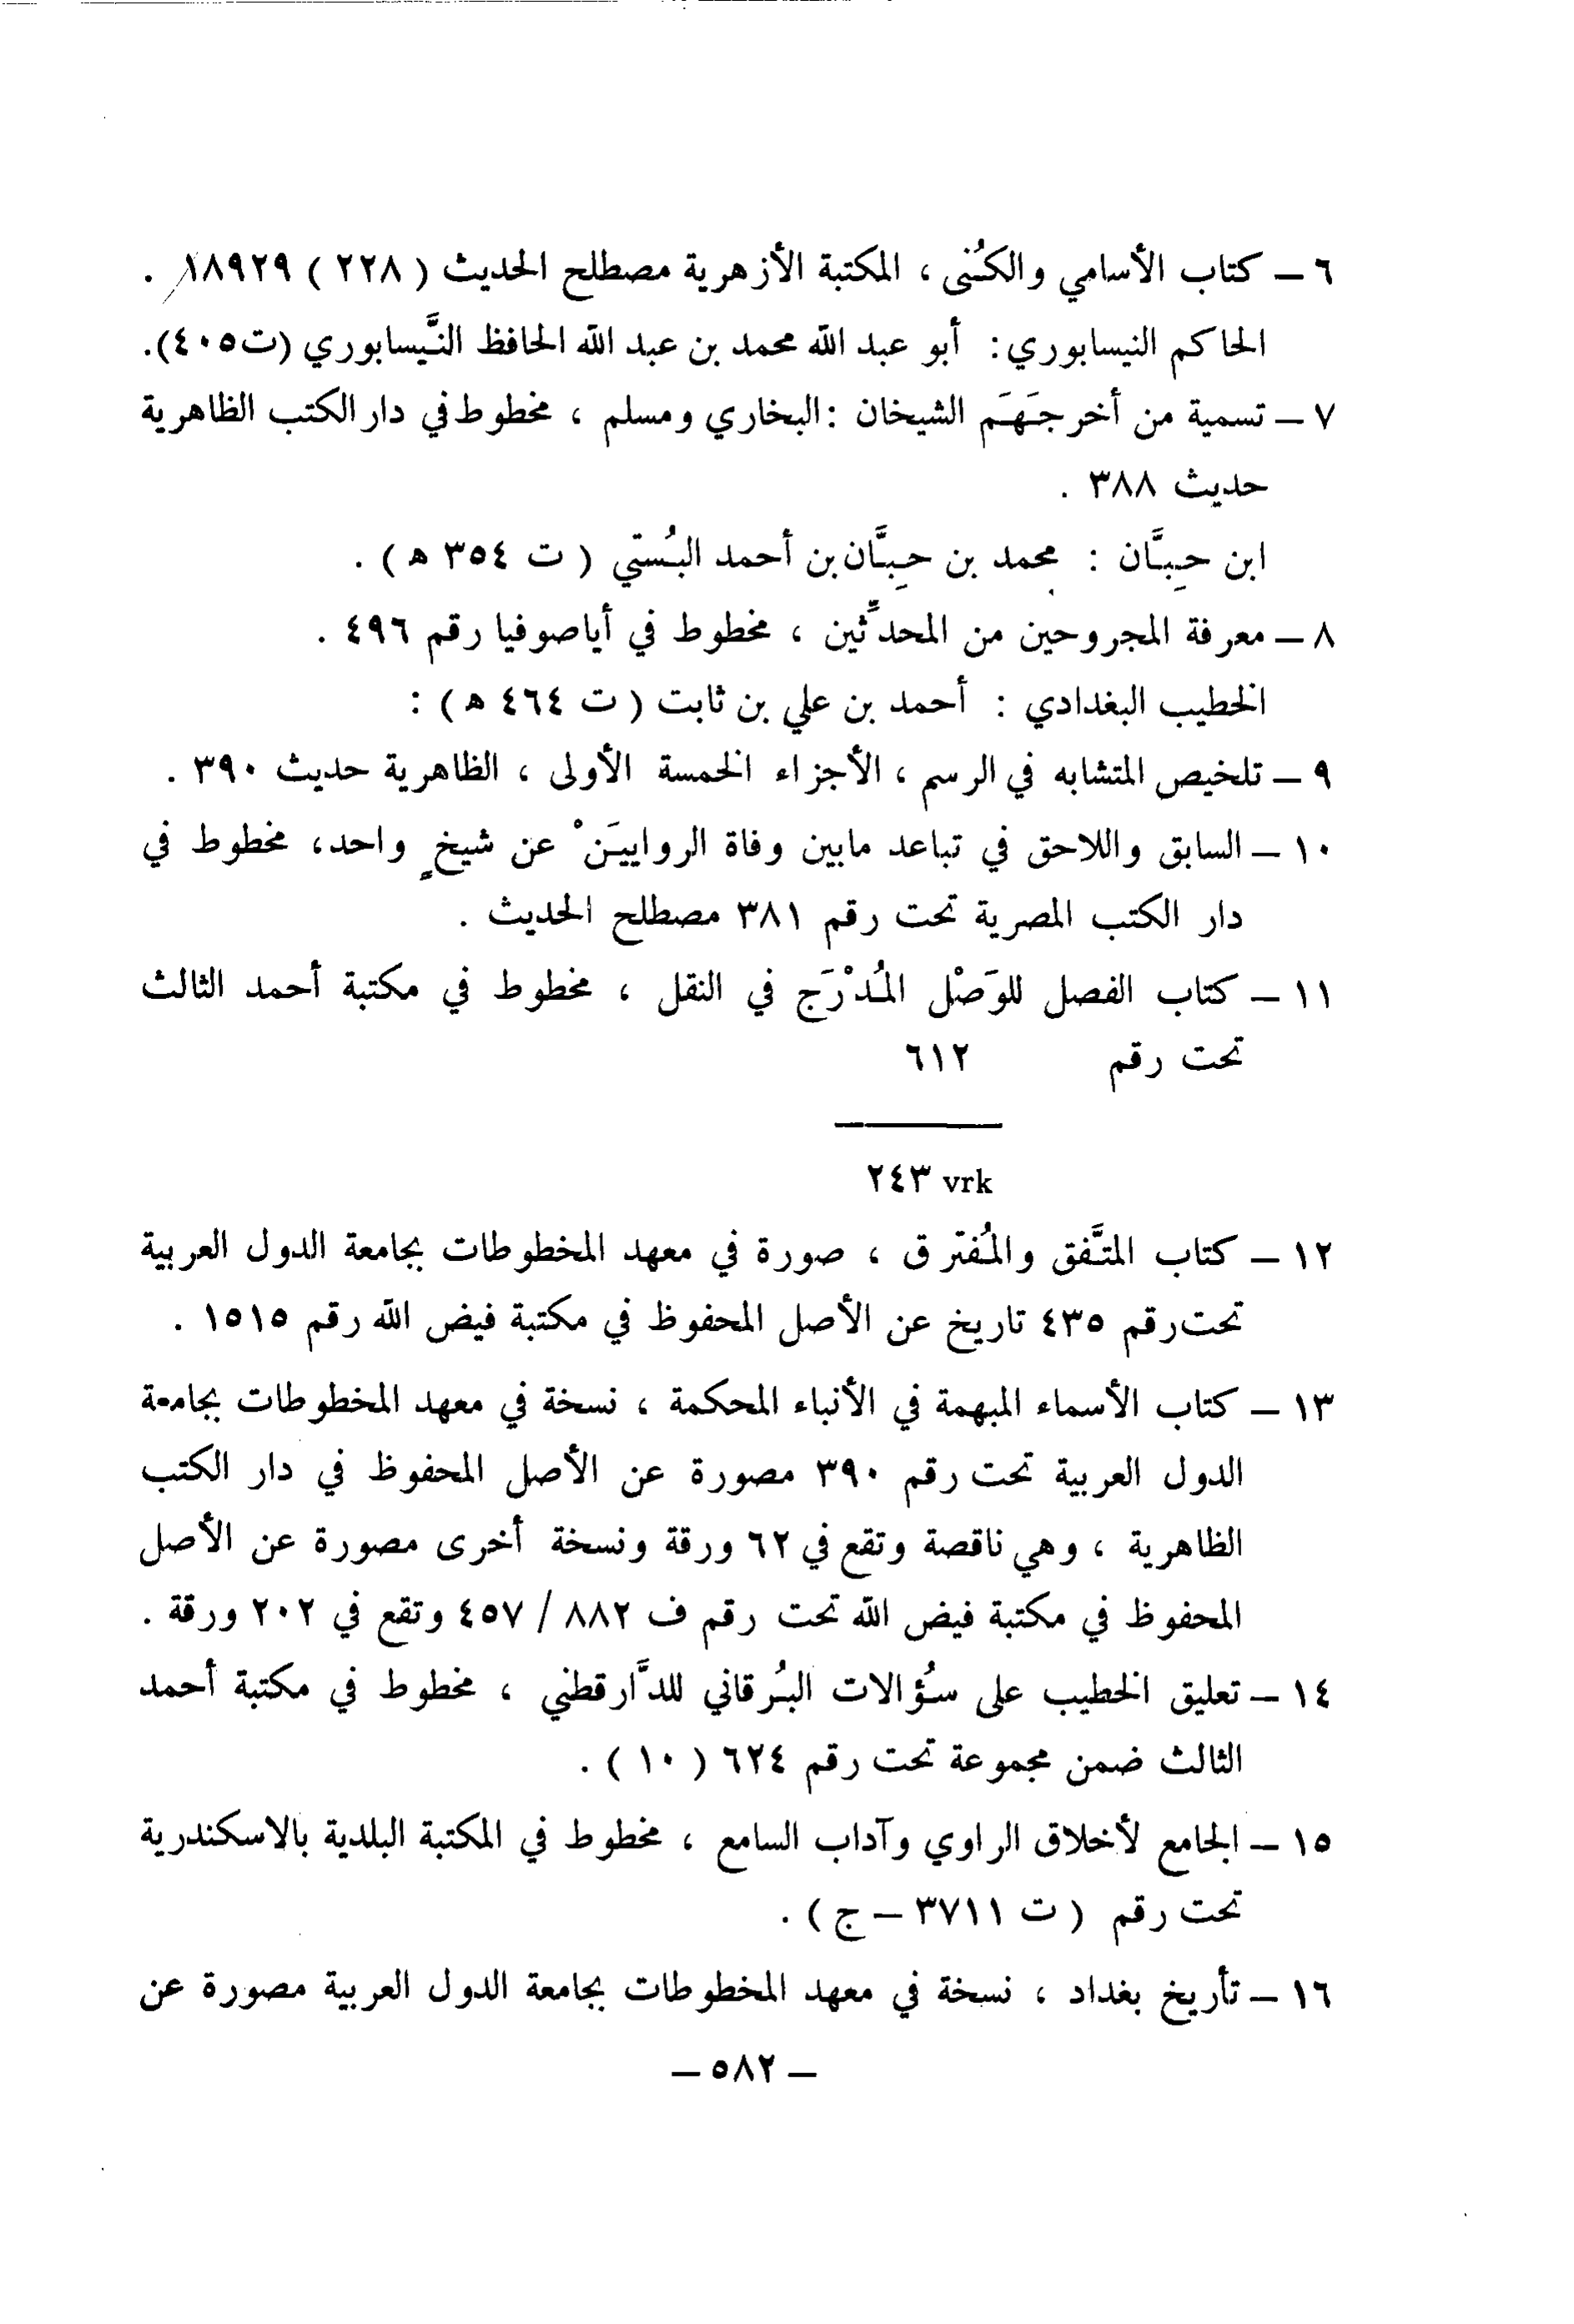 ٦ – كتاب الأسامي والكُنى ، المكتبة الأزهرية مصطلح الحديث ( ٢٢٨ ) ١٨٩٢٩ .
الحاكم النيسابوري : أبو عبد الله محمد بن عبد الله الحافظ النَّيسابوري (ت٤٠٥).
٧ – تسمية من أخرجَهَم الشيخان : البخاري ومسلم ، مخطوط في دار الكتب الظاهرية
حديث ٣٨٨ .
ابن حِبَّان : محمد بن حِبَّان بن أحمد البُستي ( ت ٣٥٤ ه ) .
٨ – معرفة المجروحين من المحدِّثين ، مخطوط في أياصوفيا رقم ٤٩٦ .
الخطيب البغدادي : أحمد بن علي بن ثابت ( ت ٤٦٤ ه ) :
٩ – تلخيص المتشابه في الرسم ، الأجزاء الخمسة الأولى ، الظاهرية حديث ٣٩٠ .
١٠ – السابق واللاحق في تباعد مابين وفاة الرواييَنْ عن شيخٍ واحد، مخطوط في
دار الكتب المصرية تحت رقم ٣٨١ مصطلح الحديث .
١١ – كتاب الفصل للوَصْل المُدْرَج في النقل ، مخطوط في مكتبة أحمد الثالث
تحت رقم ٦١٢
٢٤٣ vrk
١٢ – كتاب المتَّفق والمُفترق ، صورة في معهد المخطوطات بجامعة الدول العربية
تحت رقم ٤٣٥ تاريخ عن الأصل المحفوظ في مكتبة فيض الله رقم ١٥١٥ .
١٣ – كتاب الأسماء المبهمة في الأنباء المحكمة ، نسخة في معهد المخطوطات بجامعة
الدول العربية تحت رقم ٣٩٠ مصورة عن الأصل المحفوظ في دار الكتب
الظاهرية ، وهي ناقصة وتقع في ٦٢ ورقة ونسخة أخرى مصورة عن الأصل
المحفوظ في مكتبة فيض الله تحت رقم ف ٨٨٢ / ٤٥٧ وتقع في ٢٠٢ ورقة .
١٤ – تعليق الخطيب على سُؤالات البُرقاني للدَّارقطني ، مخطوط في مكتبة أحمد
الثالث ضمن مجموعة تحت رقم ٦٢٤ ( ١٠ ) .
١٥ – الجامع لأخلاق الراوي وآداب السامع ، مخطوط في المكتبة البلدية بالاسكندرية
تحت رقم ( ت ٣٧١١ – ج ) .
١٦ – تأريخ بغداد ، نسخة في معهد المخطوطات بجامعة الدول العربية مصورة عن
– ٥٨٢ –